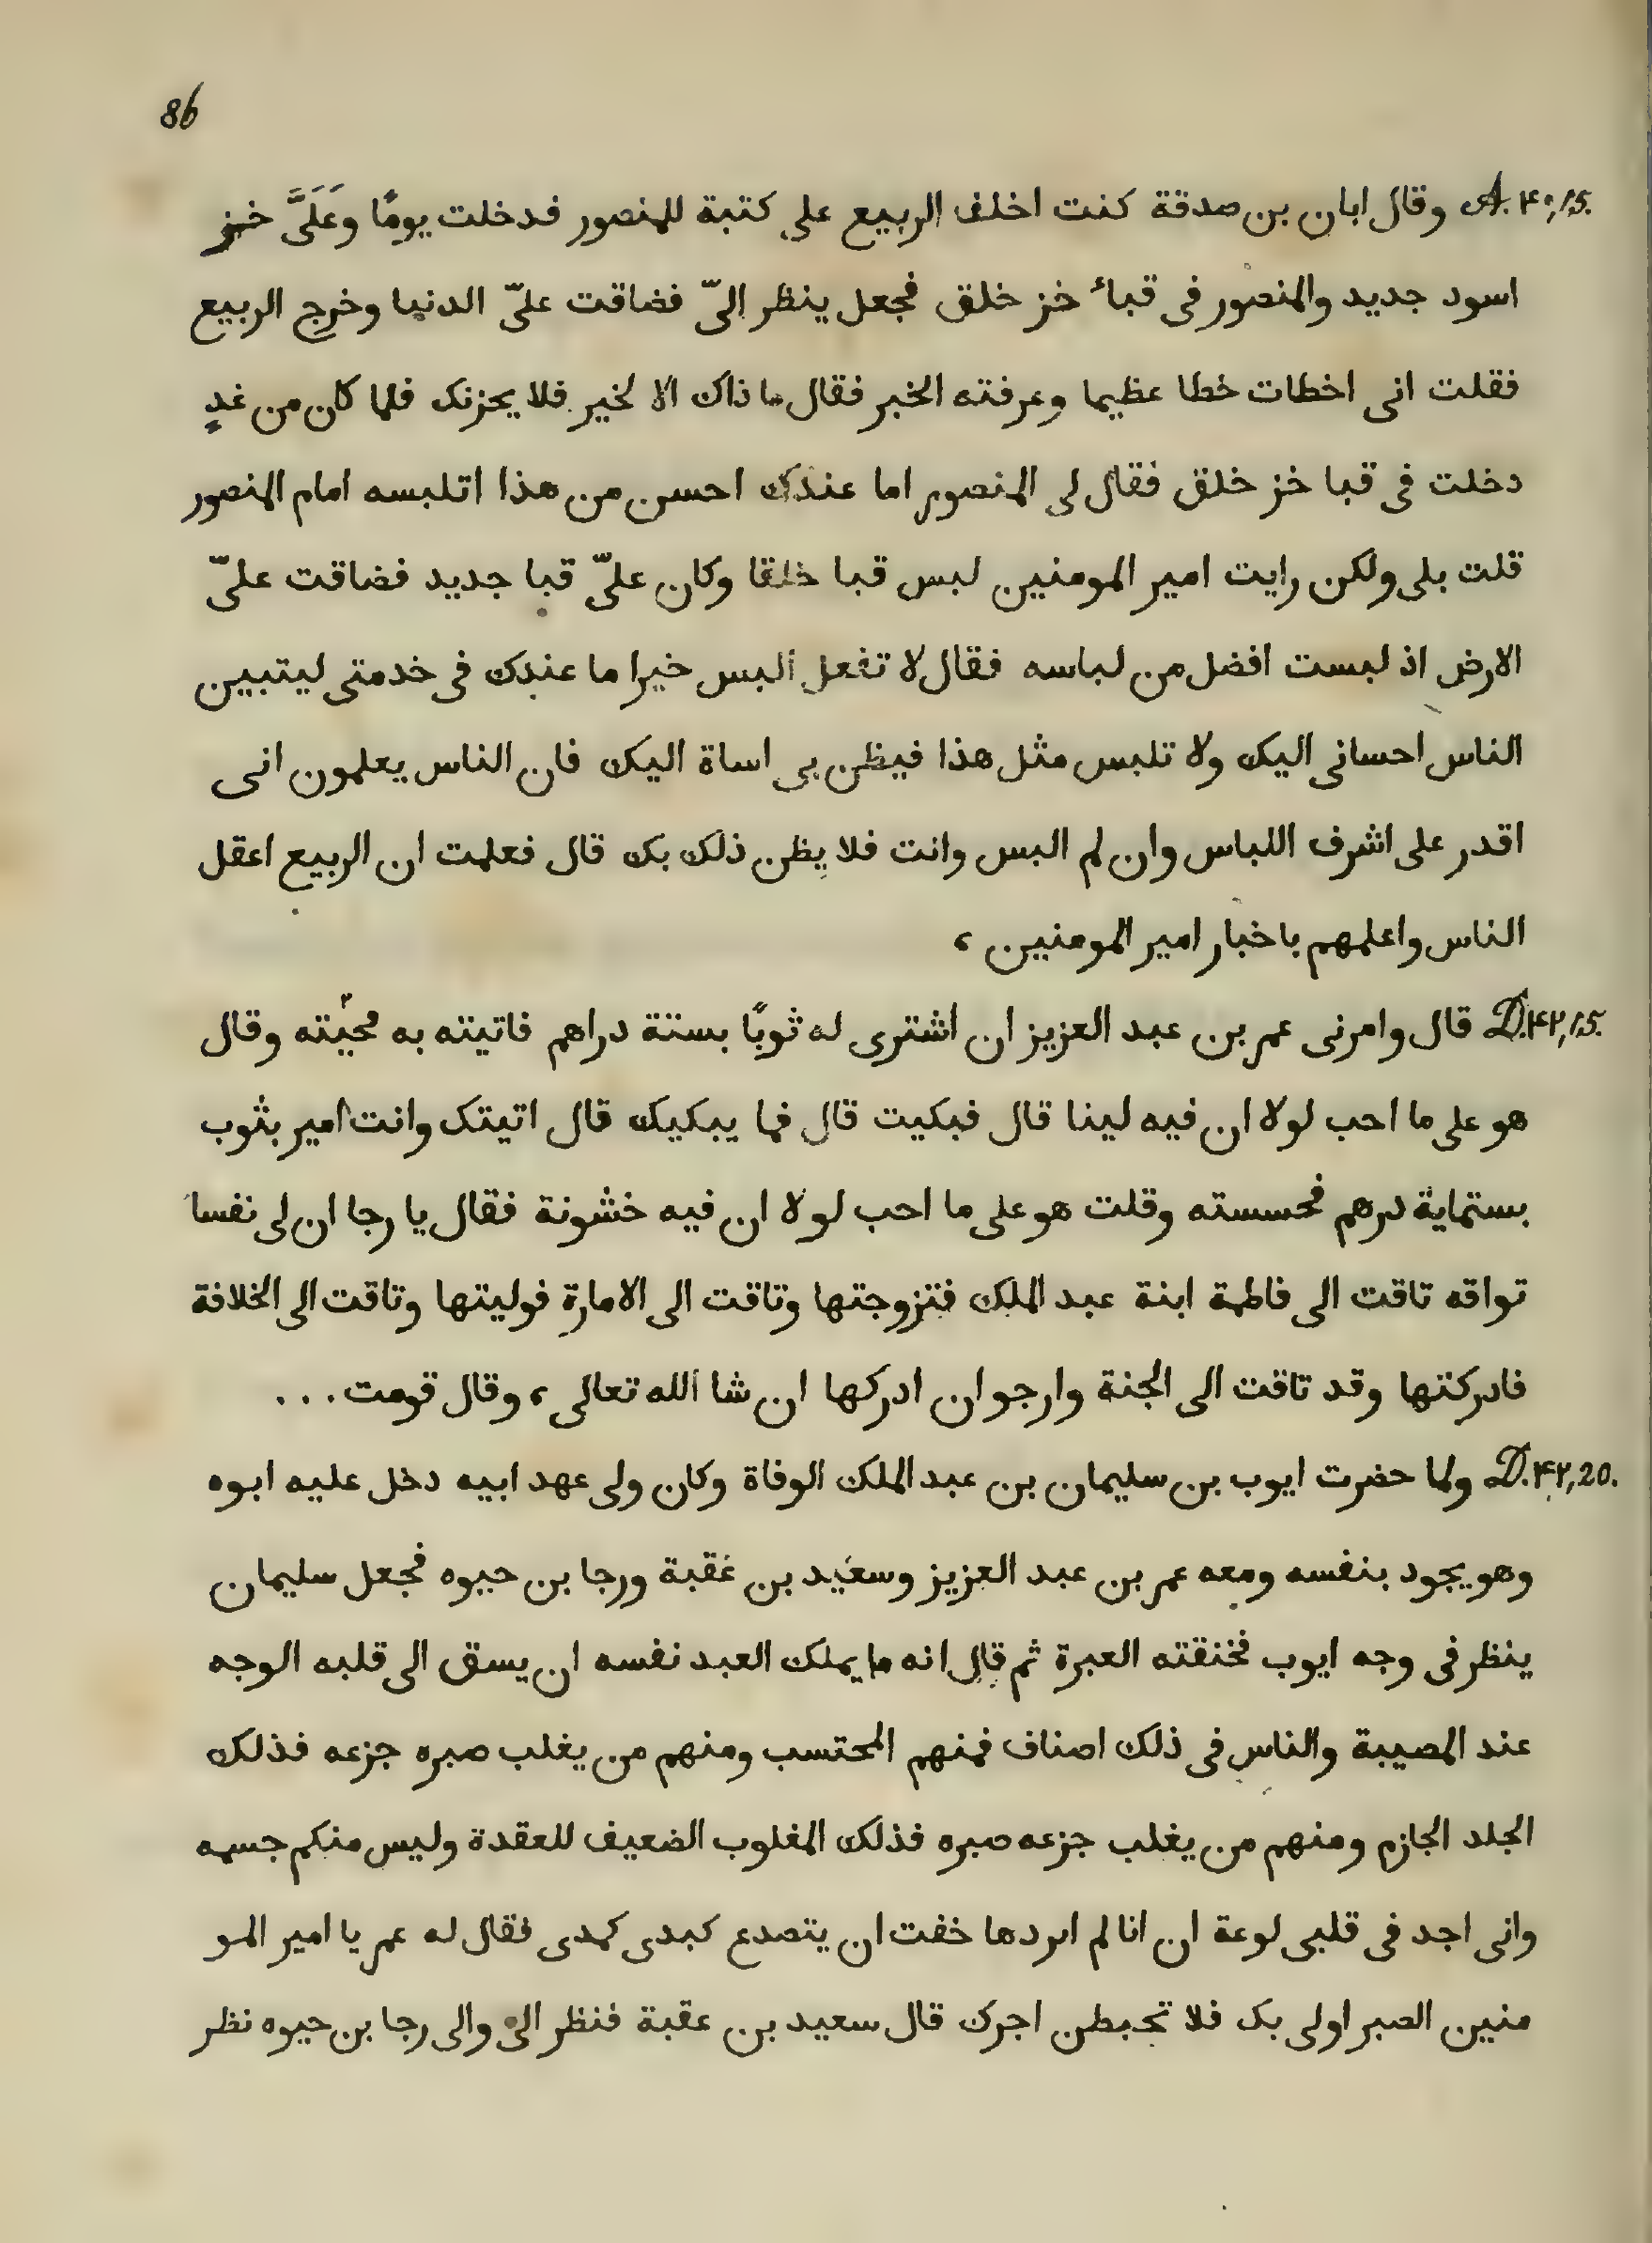 86
A. ۴۰,15. وقال ابان بن صدقة كنت اخلف الربيع على كتبة للمنصور فدخلت يومًا وَعَلَىَّ خز
اسود جديد والمنصور فى قباء خز خلق فجعل ينظر الىّ فضاقت علىّ الدنيا وخرج الربيع
فقلت انى اخطات خطا عظيما وعرفته الخبر فقال ما ذاك الا لخير فلا يحزنك فلما كان من غدٍ
دخلت فى قبا خز خلق فقال لى المنصور اما عندك احسن من هذا اتلبسه امام المنصور
قلت بلى ولكن رايت امير المومنين لبس قبا خلقا وكان علىّ قبا جديد فضاقت علىّ
الارض اذ لبست افضل من لباسه فقال لا تفعل البس خيرا ما عندك فى خدمتى ليتبين
الناس احسانى اليك ولا تلبس مثل هذا فيظن بى اساة اليك فان الناس يعلمون انى
اقدر على اشرف اللباس وان لم البس وانت فلا يظن ذلك بك قال فعلمت ان الربيع اعقل
الناس واعلمهم باخبار امير المومنين ،
D.۴۲,15. قال وامرنى عمر بن عبد العزيز ان اشترى له ثوبًا بستة دراهم فاتيته به وقال
هو على ما احب لولا ان فيه لينا قال فبكيت قال فما يبكيك قال اتيتك وانت امير بثوب
بستماية درهم فحسسته وقلت هو على ما احب لولا ان فيه خشونة فقال يا رجا ان لى نفسا
تواقه تاقت الى فاطمة ابنة عبد الملك فتزوجتها وتاقت الى الامارة فوليتها وتاقت الى الخلافة
فادركتها وقد تاقت الى الجنة وارجو ان ادركها ان شا الله تعالى ، وقال قومت . . .
D.۴۲,20. ولما حضرت ايوب بن سليمان بن عبد الملك الوفاة وكان ولى عهد ابيه دخل عليه ابوه
وهو يجود بنفسه ومعه عمر بن عبد العزيز وسعيد بن عقبة ورجا بن حيوه فجعل سليمان
ينظر فى وجه ايوب فخنقته العبرة ثم قال انه ما يملك العبد نفسه ان يسق الى قلبه الوجه
عند المصيبة والناس فى ذلك اصناف فمنهم المحتسب ومنهم من يغلب صبره جزعه فذلك
الجلد الجازم ومنهم من يغلب جزعه صبره فذلك المغلوب الضعيف للعقدة وليس منكم جسمه
وانى اجد فى قلبى لوعة ان انا لم ابردها خفت ان يتصدع كبدى كمدى فقال له عمر يا امير المو
منين الصبر اولى بك فلا تحبطن اجرك قال سعيد بن عقبة فنظر الى والى رجا بن حيوه نظر